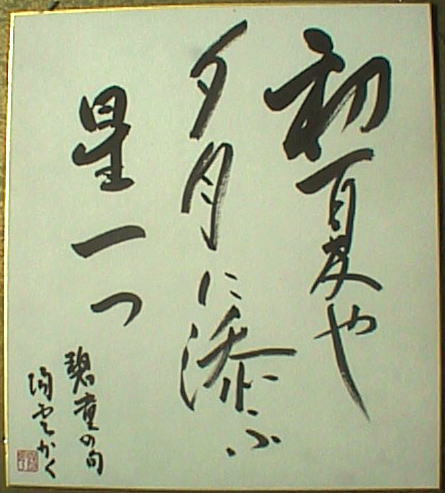 初夏や
夕月に添ふ
星一つ
碧童の句
陽雲かく